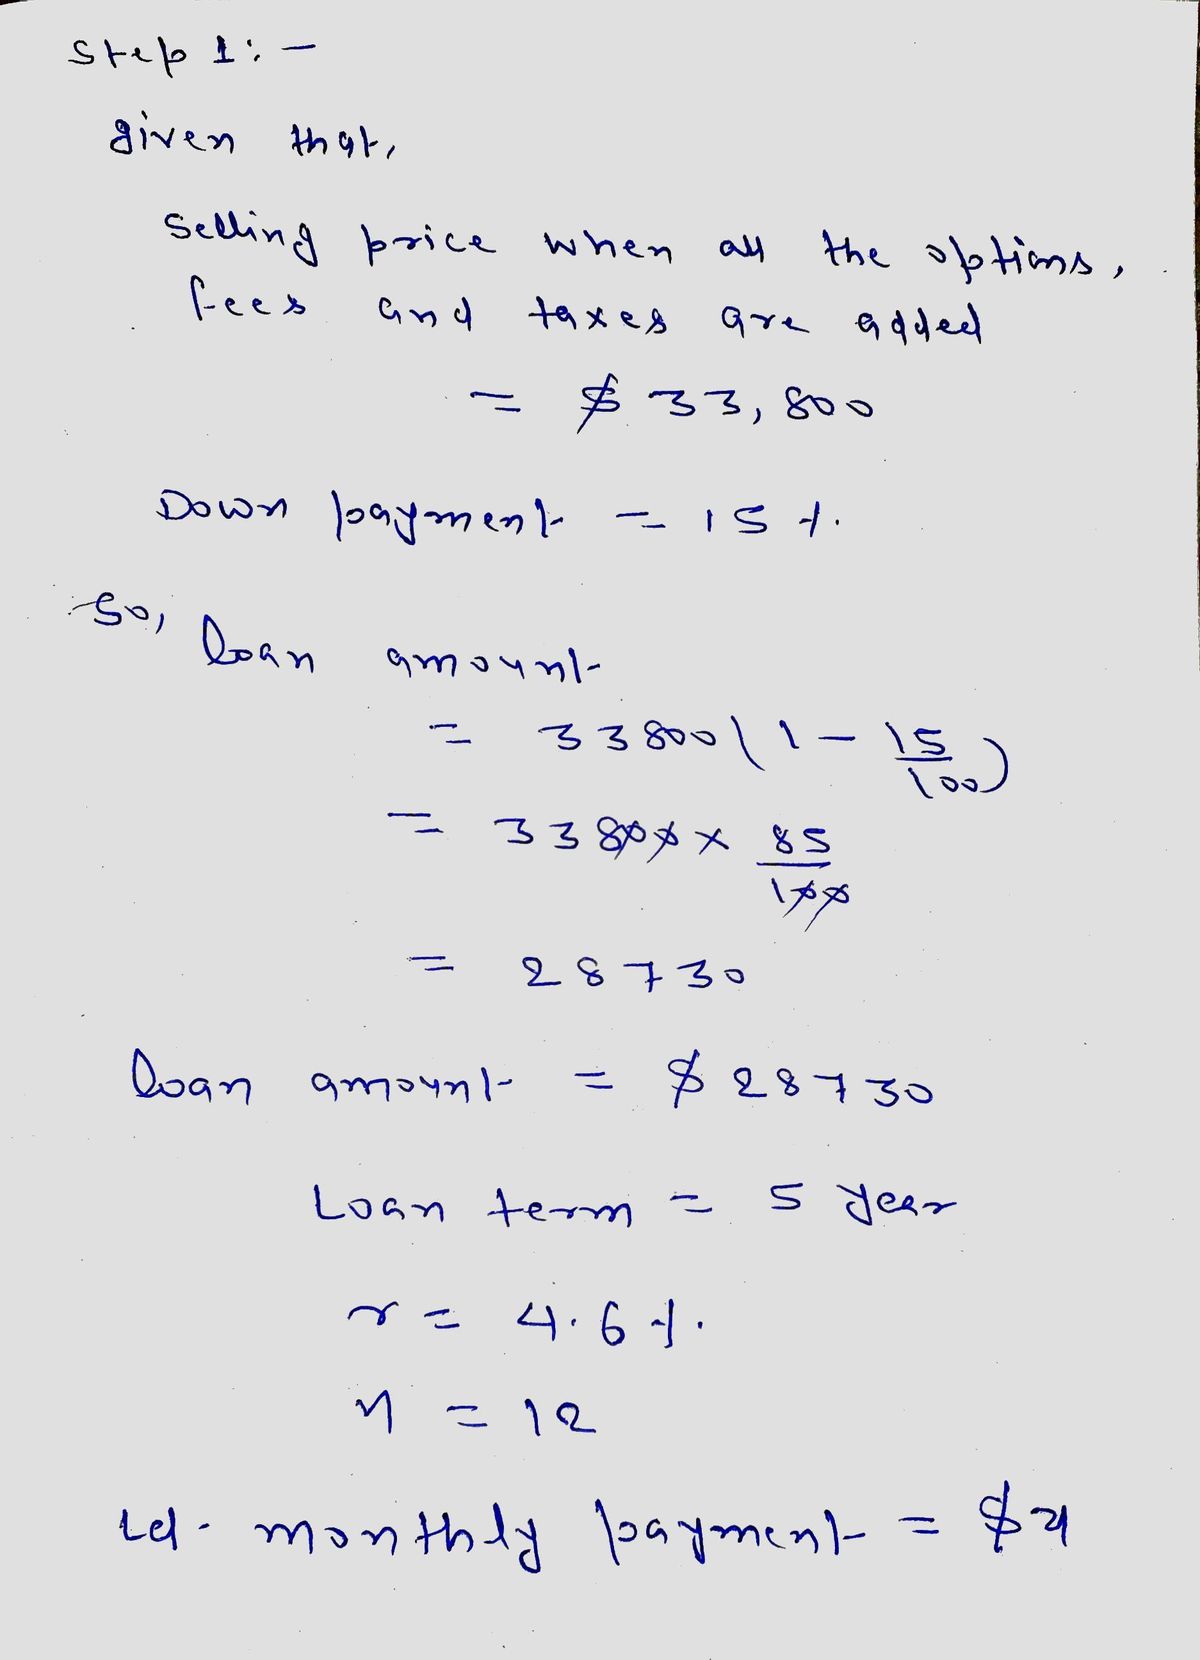 Step 1:-
given that,
Selling price when all the options,
fees and taxes are added
= $ 33,800
Down payment = 15 %.
So, loan amount
= 33800(1 - 15/100)
= 33800 × 85/100
= 28730
loan amount = $ 28730
Loan term = 5 year
r = 4.6 %.
n = 12
Let monthly payment = $ x